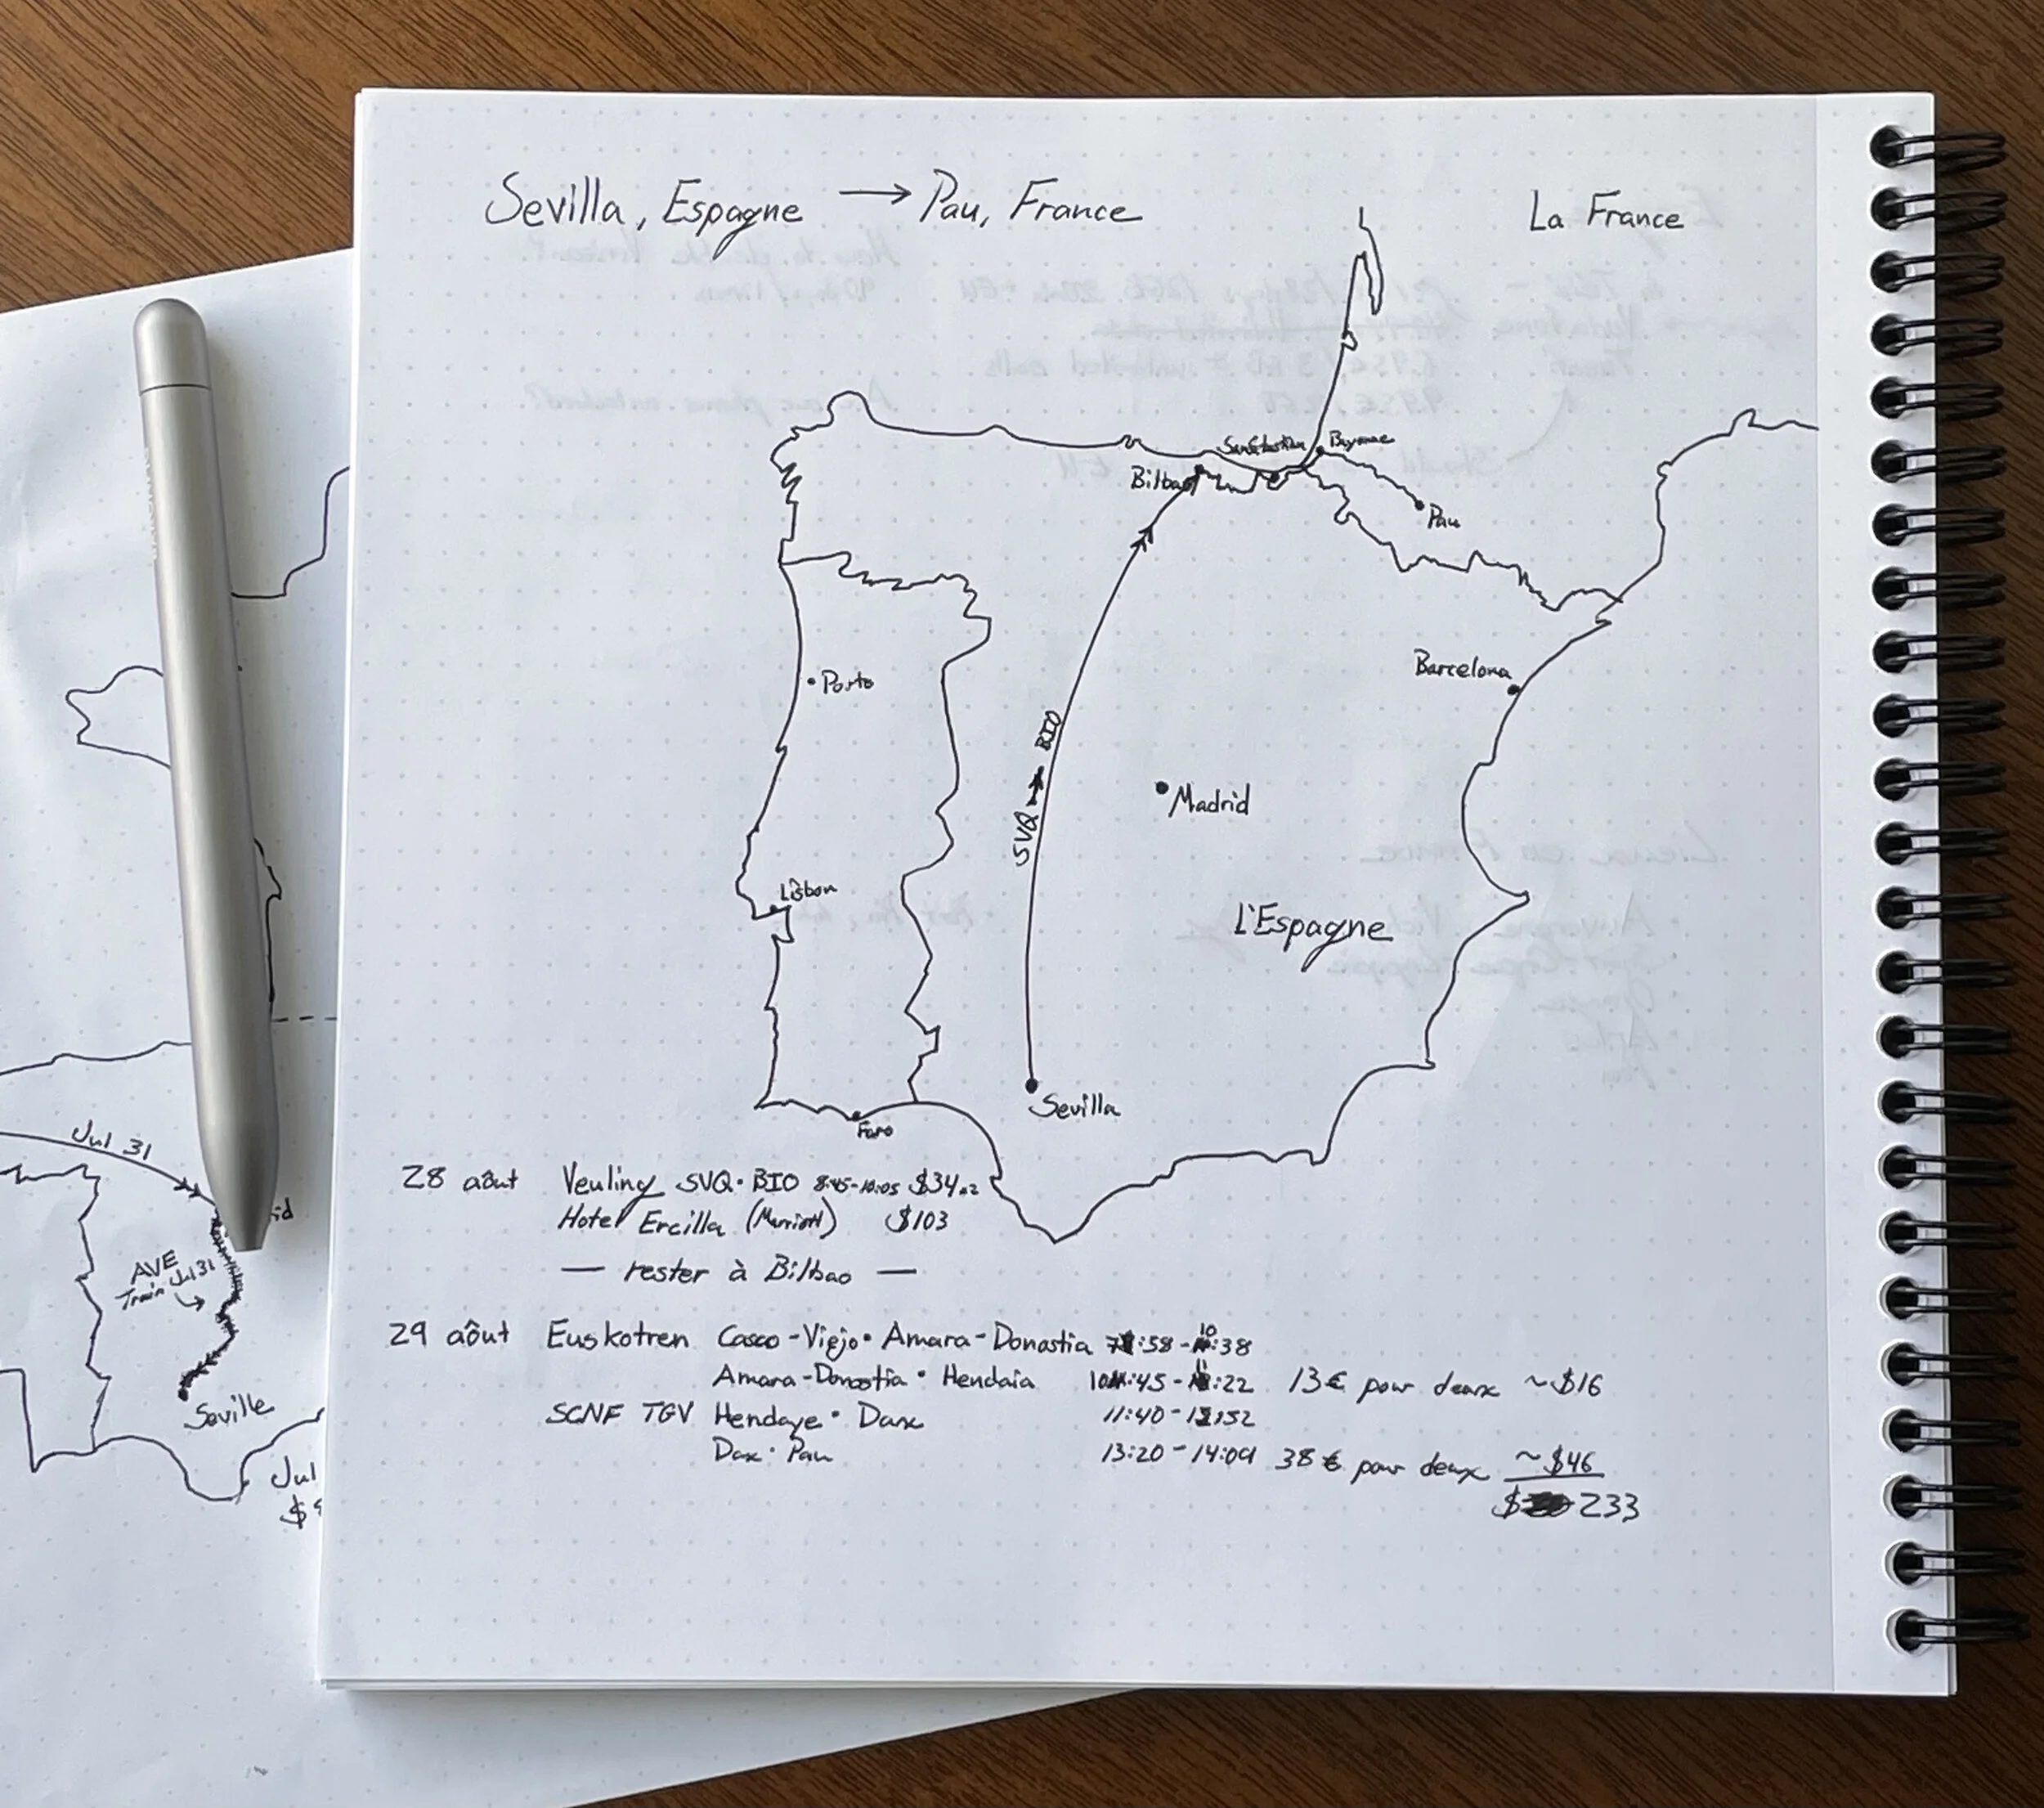 Sevilla, Espagne → Pau, France
La France
San Sebastian
Bayonne
Bilbao
Pau
Barcelona
Porto
SVQ → BIO
Madrid
Lisbon
L'Espagne
Sevilla
Faro
28 aôut Veuling SVQ · BIO 8:45-10:05 $34 x2
Hotel Ercilla (Marriott) $103
— rester à Bilbao —
29 aôut Euskotren Casco-Viejo · Amara-Donostia 7:58 - 10:38
Amara-Donostia · Hendaia 10:45 - 11:22 13€ pour deux ~$16
SCNF TGV Hendaye · Dax 11:40 - 12:52
Dax · Pau 13:20 - 14:09 38€ pour deux ~$46
$ 233
Jul 31
AVE
Train Jul 31
Seville
Jul
$